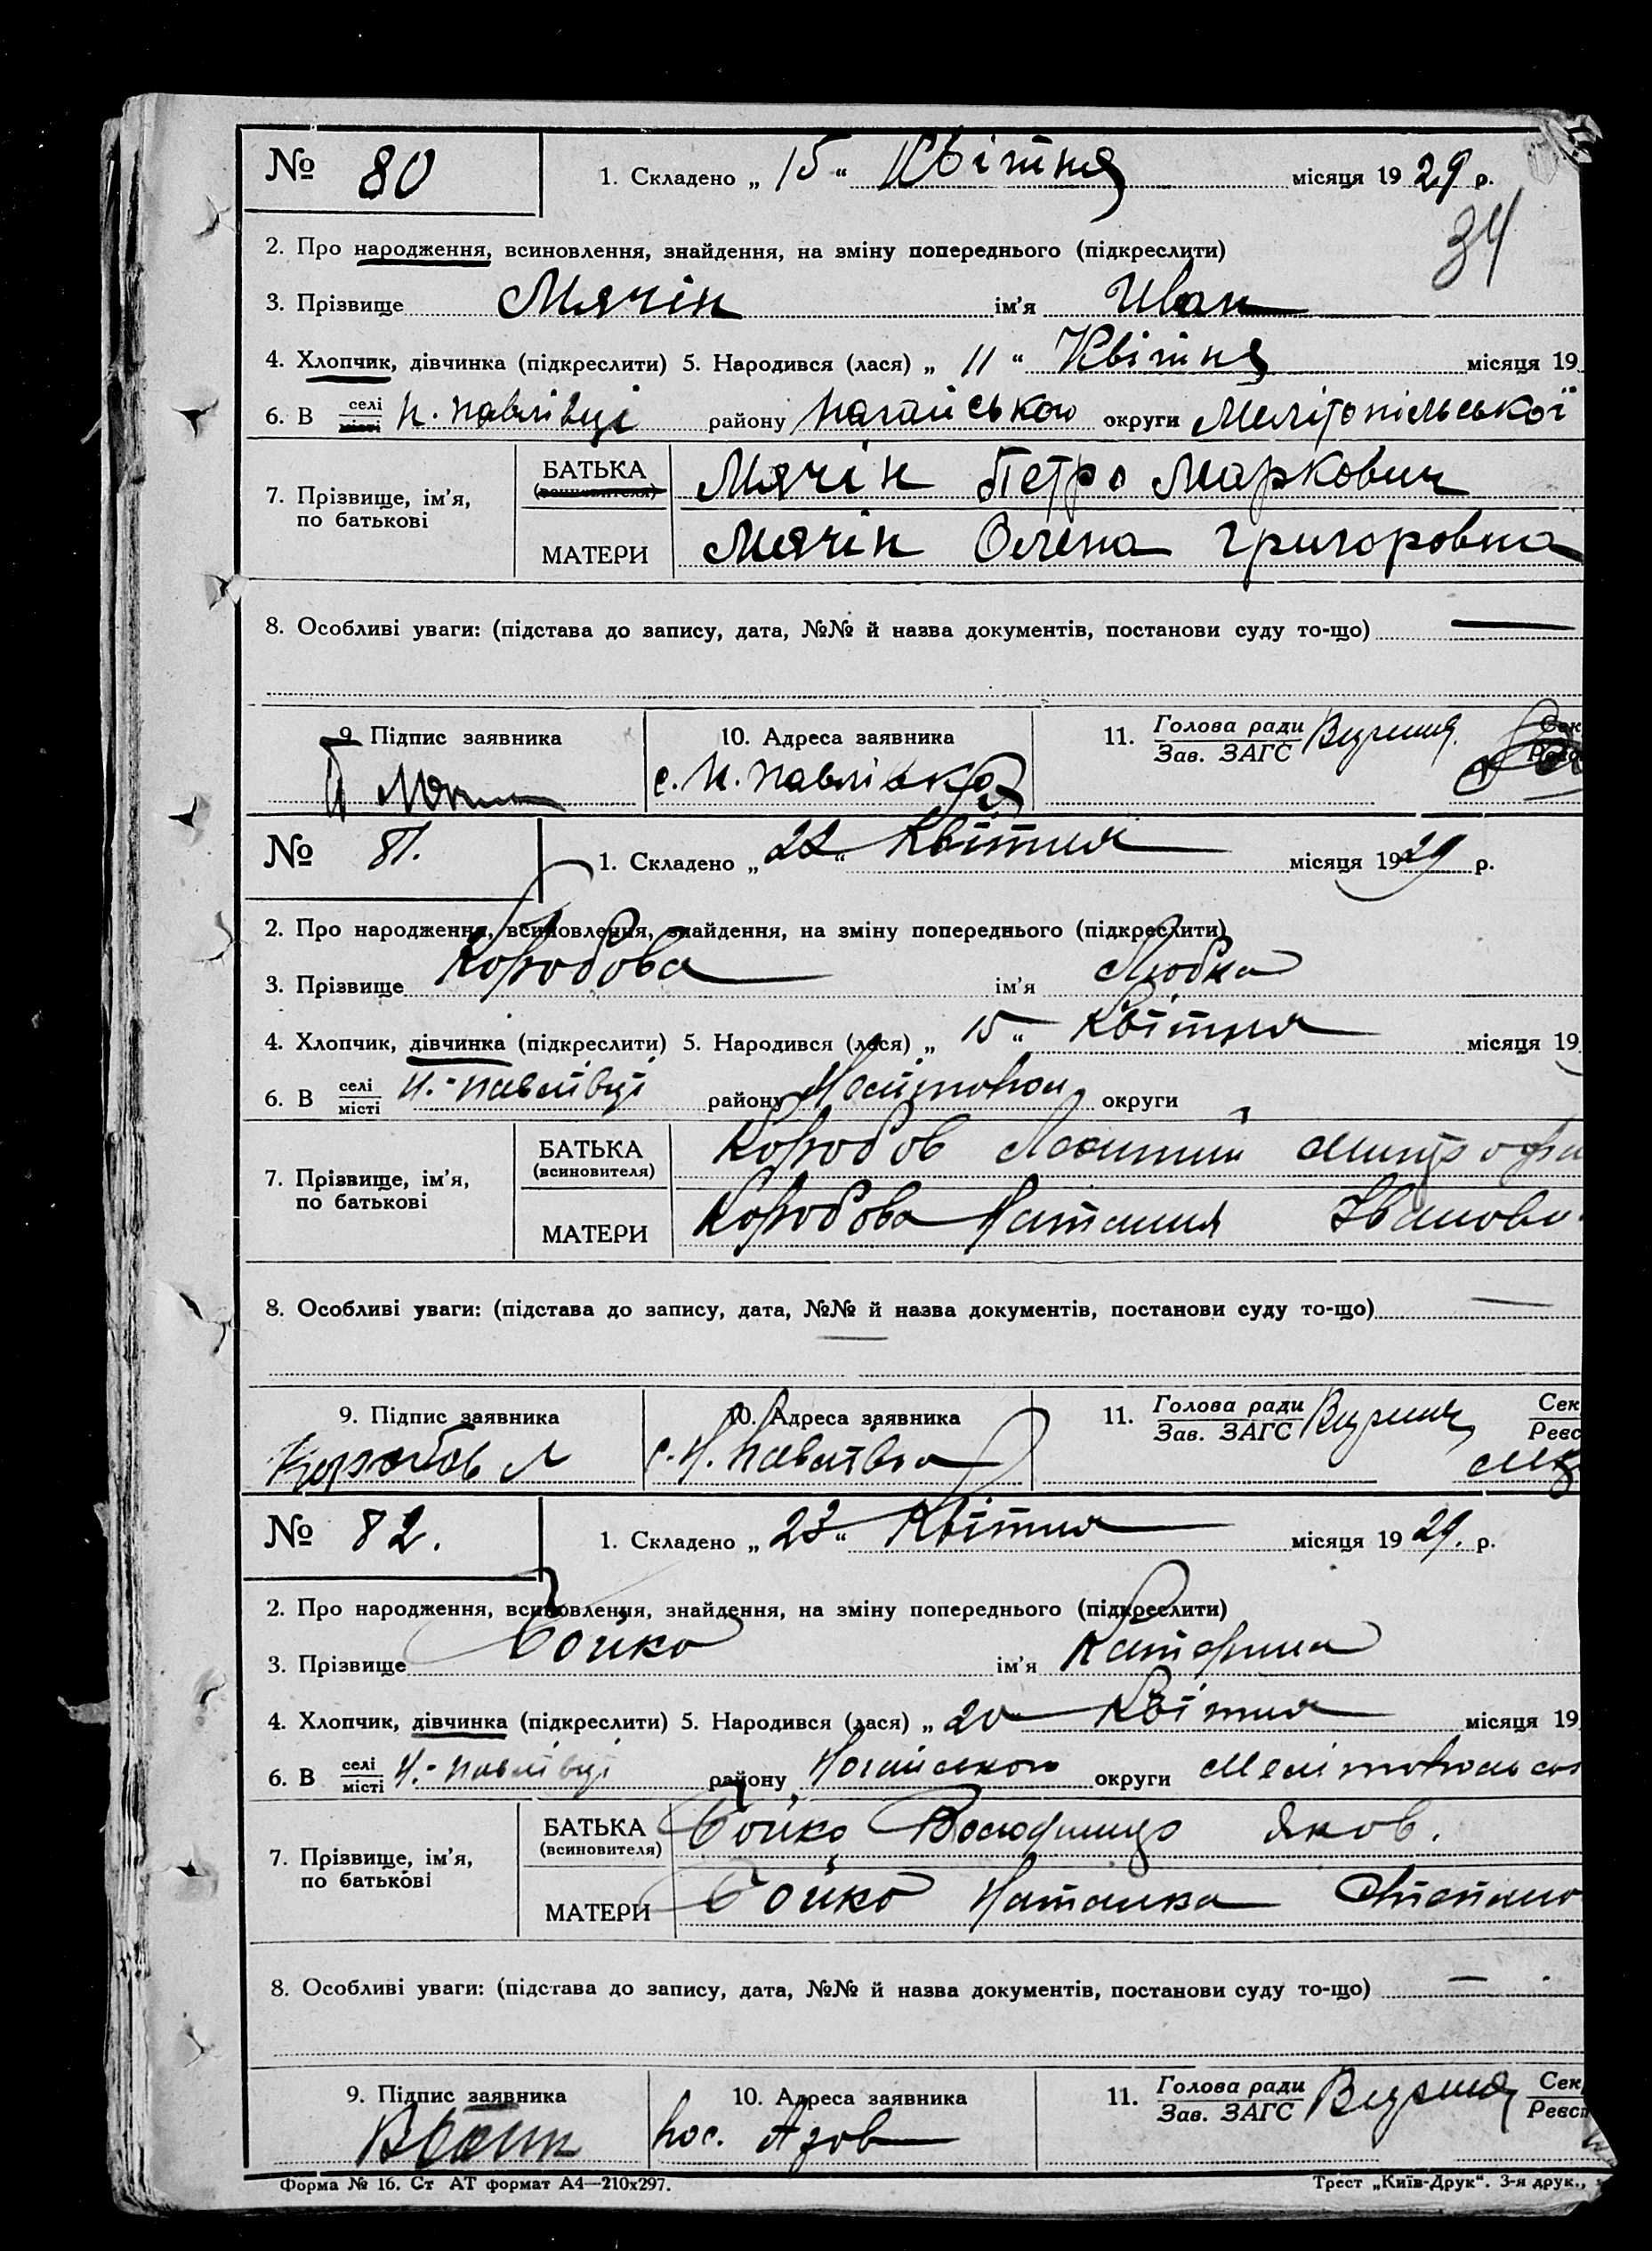 № 80 1. Складено „ 15 “ Квітня місяця 19 29 р.
34
2. Про народження, всиновлення, знайдення, на зміну попереднього (підкреслити)
3. Прізвище Мячін ім’я Иван
4. Хлопчик, дівчинка (підкреслити) 5. Народився (лася) „ 11 “ Квітня місяця 19
6. В селі місті Н. Павлівці району Нагайською округи Мелітопільської
7. Прізвище, ім’я, по батькові
БАТЬКА (всиновителя) Мячін Петро Маркович
МАТЕРИ Мячін Олена Григоровна
8. Особливі уваги: (підстава до запису, дата, №№ й назва документів, постанови суду то-що) —
9. Підпис заявника 10. Адреса заявника 11. Голова ради Сек
Зав. ЗАГС
с. Н. Павлівка
№ 81. 1. Складено „ 22 “ Квітня місяця 19 29 р.
2. Про народження, всиновлення, знайдення, на зміну попереднього (підкреслити)
3. Прізвище Коробова ім’я Любка
4. Хлопчик, дівчинка (підкреслити) 5. Народився (лася) „ 15 “ Квітня місяця 19
6. В селі місті Н.-Павлівці району округи
7. Прізвище, ім’я, по батькові
БАТЬКА (всиновителя) Коробов Митрофа
МАТЕРИ Коробова Наталия Іванови
8. Особливі уваги: (підстава до запису, дата, №№ й назва документів, постанови суду то-що) —
9. Підпис заявника 10. Адреса заявника 11. Голова ради Сек
Зав. ЗАГС Реєс
Коробов Л с. Н. Павлівка
№ 82. 1. Складено „ 23 “ Квітня місяця 19 29. р.
2. Про народження, всиновлення, знайдення, на зміну попереднього (підкреслити)
3. Прізвище Бойко ім’я Катерина
4. Хлопчик, дівчинка (підкреслити) 5. Народився (лася) „ 20 “ Квітня місяця 19
6. В селі місті Н.-Павлівці району Ногайською округи Мелітопольсь
7. Прізвище, ім’я, по батькові
БАТЬКА (всиновителя) Бойко Володимир Яков.
МАТЕРИ Бойко Наталка Степано
8. Особливі уваги: (підстава до запису, дата, №№ й назва документів, постанови суду то-що) —
9. Підпис заявника 10. Адреса заявника 11. Голова ради Сек
Зав. ЗАГС Реєст
пос. Азов
Форма № 16. Ст АТ формат А4—210х297. Трест „Київ-Друк“. 3-я друк.,